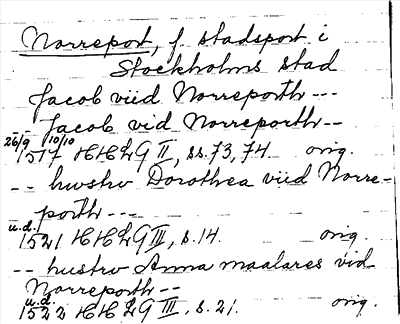 Norreport, f. stadsport i
Stockholms stad
Jacob viid Norreporth ---
-- Jacob vid Norreporth --
26/9 10/10
1517 HHLG II, ss. 73, 74 orig.
-- hwstrv Dorothea viid Norre-
porth ---
u.d.
1521 HHLG III, s. 14. orig.
-- hustrv Anna maalares vid
Norreporth --
u.d.
1522 HHLG III, s. 21. orig.